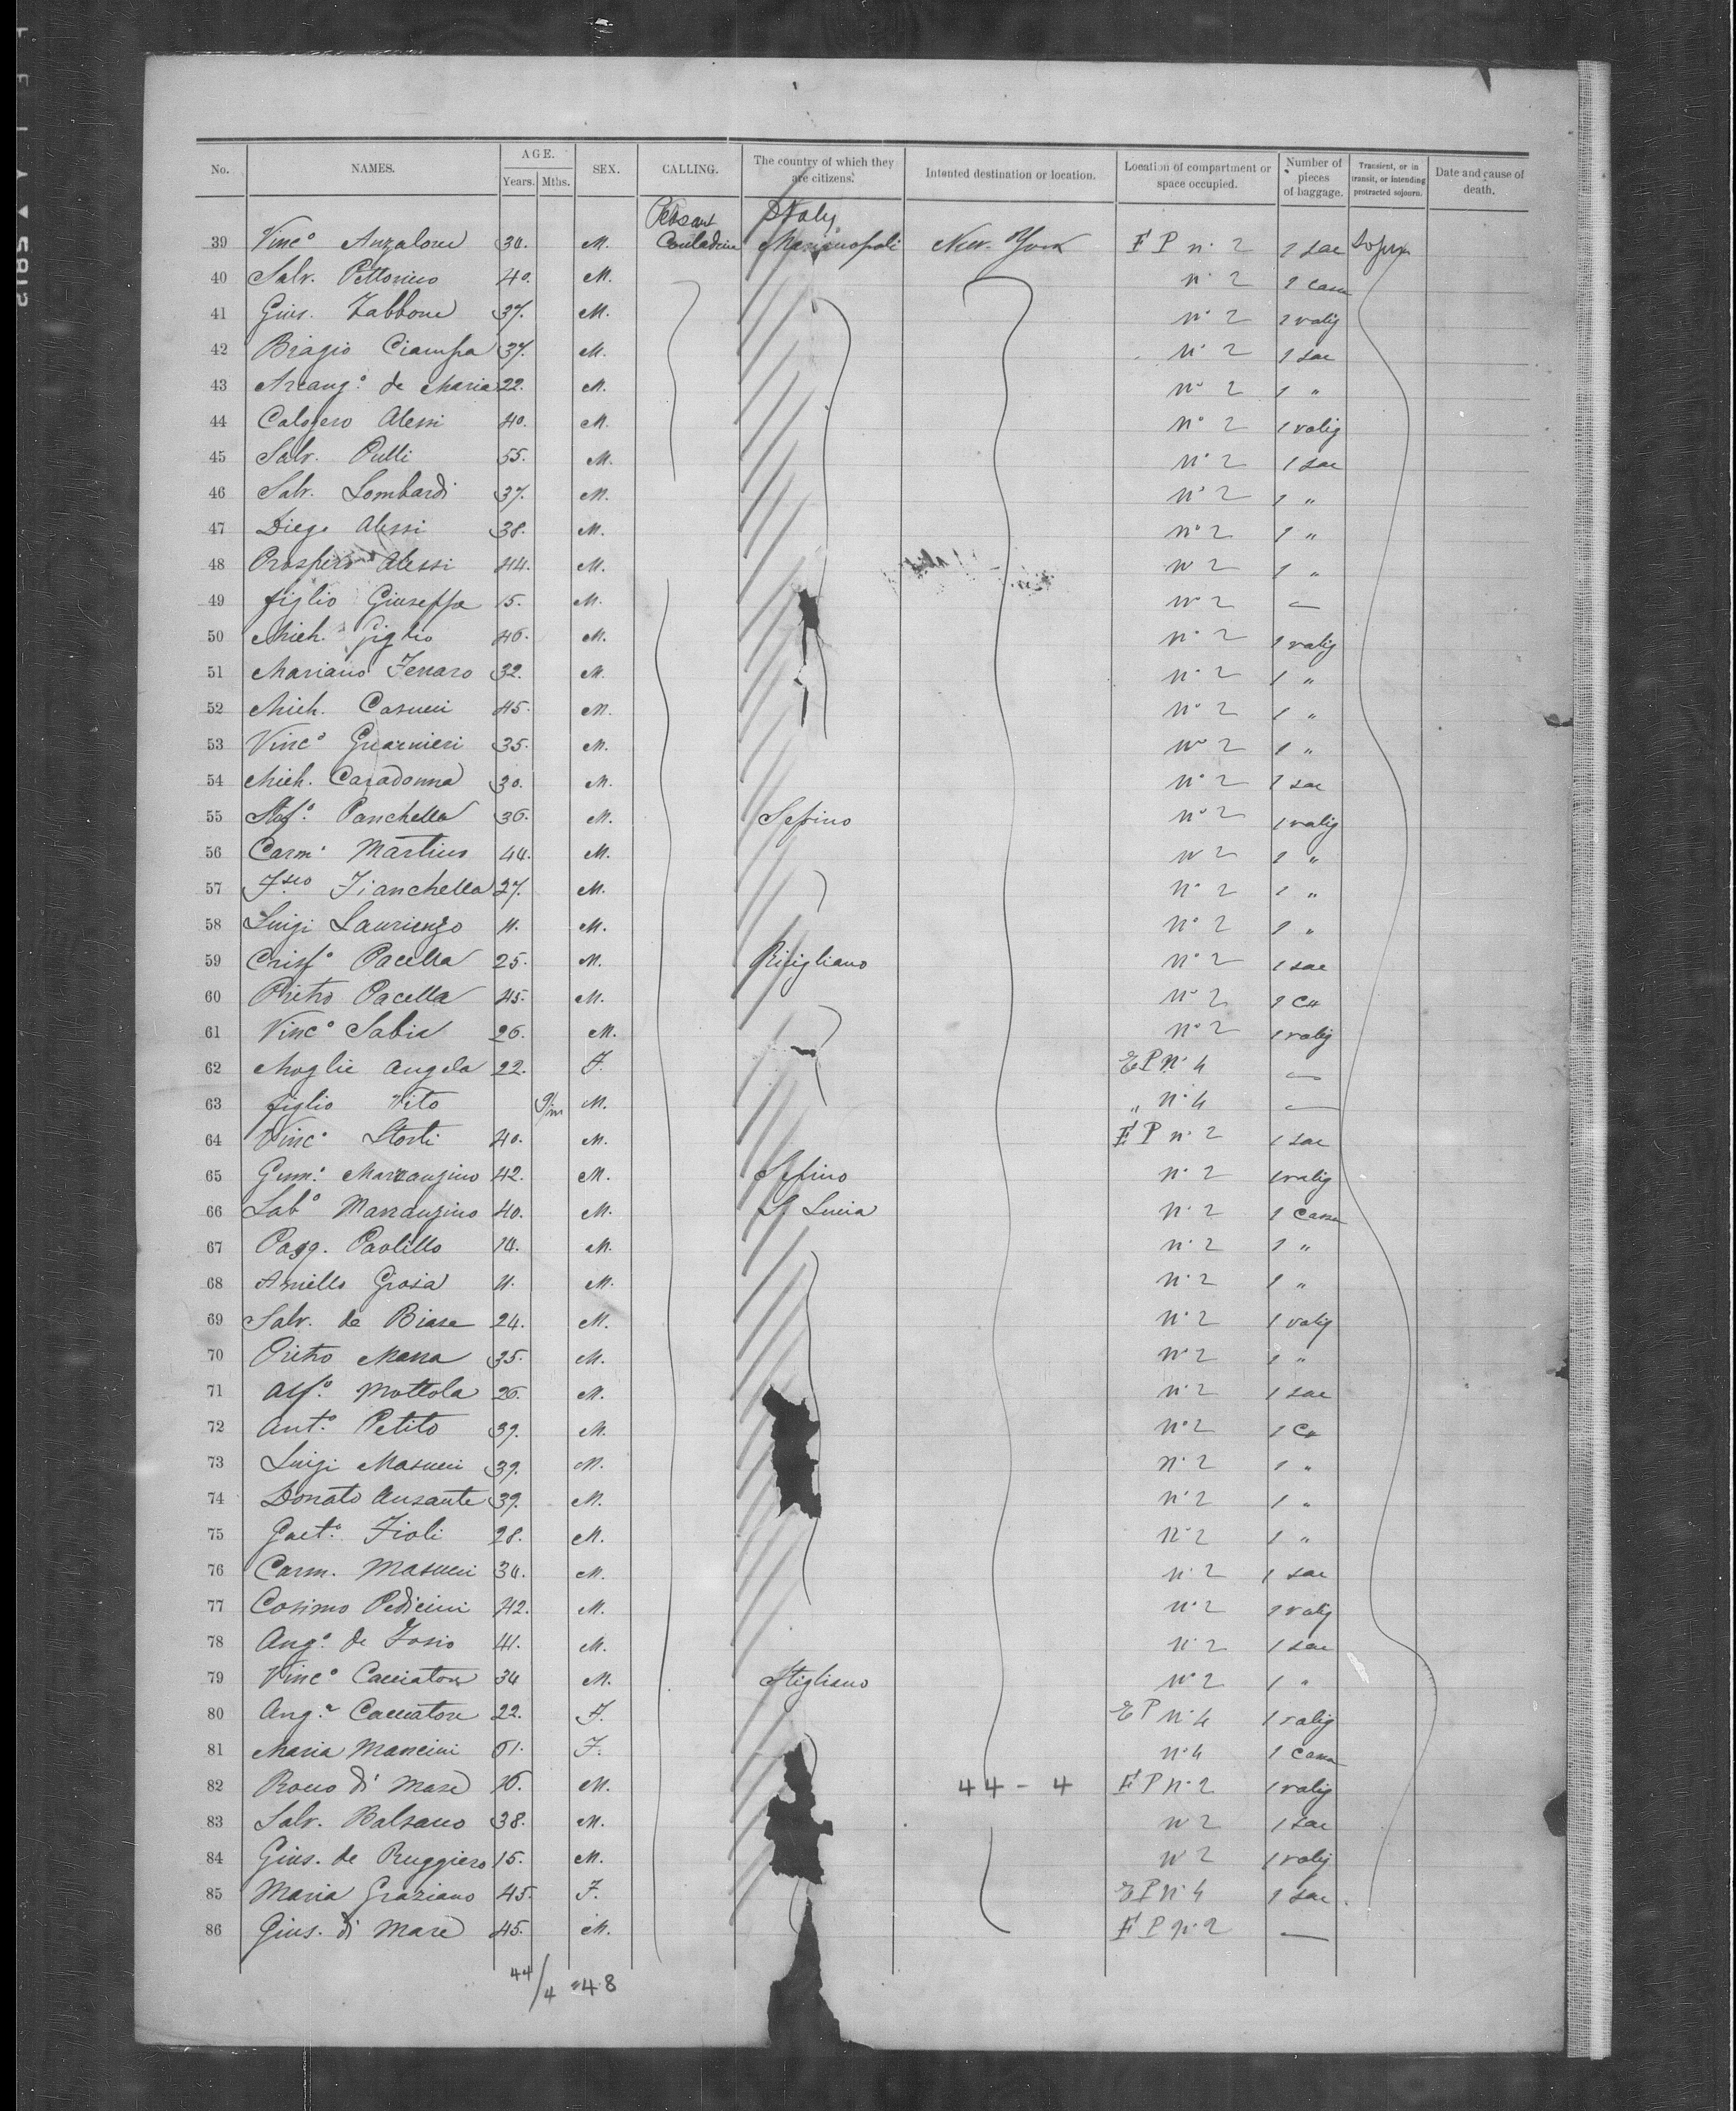 No. NAMES. AGE. Years. Mths. SEX. CALLING. The country of which they are citizens. Intented destination or location. Location of compartment or space occupied. Number of pieces of baggage. Transient, or in transit, or intending protracted sojourn. Date and cause of death.
Peasant Italy
39 Vinc.º Anzalone 30. M. Contadine Marianopoli New-York F P n. 2 1 sac Sojurn
40 Salv. Pettorino 40. M. n. 2 1 cassa
41 Gius. Zabbone 37. M. n. 2 1 valig
42 Biagio Ciampa 37. M. n. 2 1 sac
43 Arcang.º de Maria 22. M. n. 2 1 "
44 Calogero Alessi 40. M. n. 2 1 valig
45 Salv. Pulli 55. M. n. 2 1 sac
46 Salv. Lombardi 37. M. n. 2 1 "
47 Diego Alessi 38. M. n. 2 1 "
48 Prospero Alessi 44. M. n. 2 1 "
49 figlio Giuseppe 15. M. n. 2 —
50 Mich. Giglio 46. M. n. 2 1 valig
51 Mariano Ferraro 32. M. n. 2 1 "
52 Mich. Casucci 45. M. n. 2 1 "
53 Vinc.º Guarnieri 35. M. n. 2 1 "
54 Mich. Caradonna 30. M. n. 2 1 sac
55 Stef.º Panchella 36. M. Sepino n. 2 1 valig
56 Carm. Martino 44. M. n. 2 1 "
57 Fianchella 27. M. n. 2 1 "
58 Luigi Laurienzo 11. M. n. 2 1 "
59 Crist.º Pacella 25. M. Ricigliano n. 2 1 sac
60 Pietro Pacella 45. M. n. 2 1 Ca
61 Vinc.º Sabia 26. M. n. 2 1 valig
62 Moglie Angela 22. F. E P n. 4 —
63 figlio Vito 9/m M. " n. 4 —
64 Vinc.º Storti 40. M. F P n. 2 1 sac
65 Genn. Marzanzino 42. M. Sepino n. 2 1 valig
66 Sab.º Marzanzino 40. M. S. Lucia n. 2 1 Cassa
67 Pasq. Paolillo 14. M. n. 2 1 "
68 Aniello Gioia 11. M. n. 2 1 "
69 Salv. de Biase 24. M. n. 2 1 valig
70 Pietro Massa 35. M. n. 2 1 "
71 Alf.º Mottola 26. M. n. 2 1 sac
72 Ant.º Petito 39. M. n. 2 1 Ca
73 Luigi Masucci 39. M. n. 2 1 "
74 Donato Ausante 39. M. n. 2 1 "
75 Gaet.º Fioli 28. M. n. 2 1 "
76 Carm. Masucci 34. M. n. 2 1 sac
77 Cosimo Pedicini 42. M. n. 2 1 valig
78 Ang.º de Iosio 41. M. n. 2 1 sac
79 Vinc.º Cacciatore 34 M. Stigliano n. 2 1 "
80 Ang.ª Cacciatore 22. F. E P n. 4 1 valig
81 Maria Mancini 61. F. n. 4 1 Cassa
82 Rocco di Mare 16. M. 44 - 4 F P n. 2 1 valig
83 Salv. Balsano 38. M. n. 2 1 sac
84 Gius. de Ruggiero 15. M. n. 2 1 valig
85 Maria Graziano 45. F. E P n. 4 1 sac.
86 Gius. di Mare 45. M. F P n. 2 —
44/4 = 48